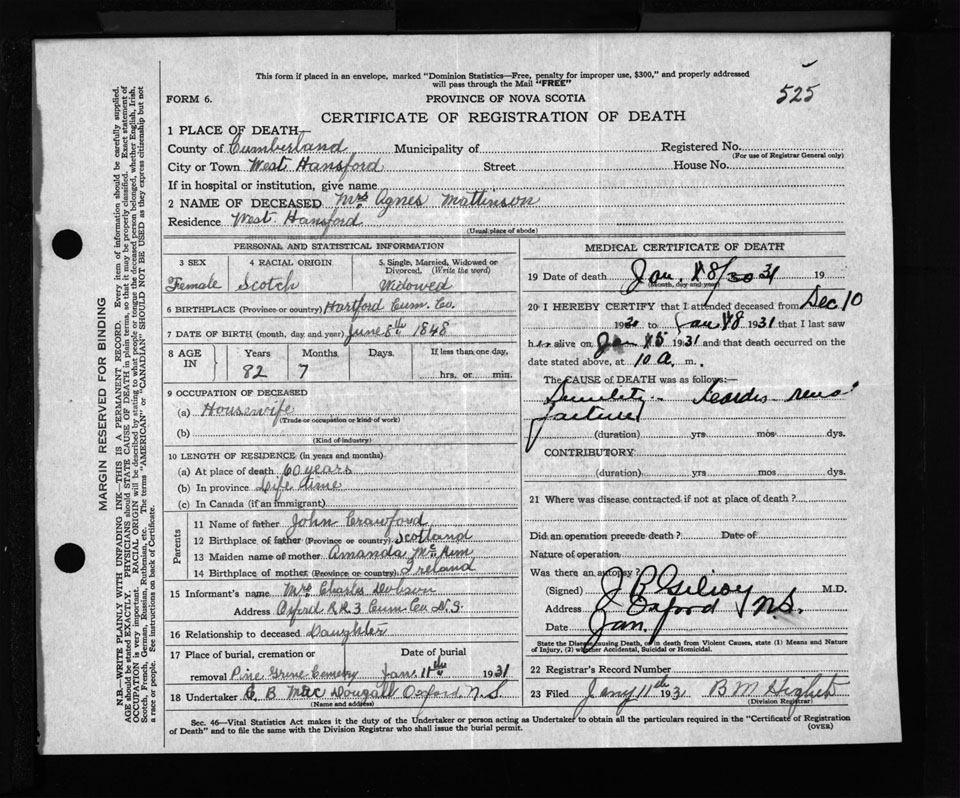 This form if placed in an envelope, marked "Dominion Statistics—Free, penalty for improper use, $300," and properly addressed
will pass through the Mail "FREE"
525
FORM 6.
PROVINCE OF NOVA SCOTIA
CERTIFICATE OF REGISTRATION OF DEATH
1 PLACE OF DEATH—
County of Cumberland Municipality of Registered No.
(For use of Registrar General only)
City or Town West Hansford Street House No.
If in hospital or institution, give name
2 NAME OF DECEASED Mrs Agnes Mattinson
Residence West Hansford
(Usual place of abode)
PERSONAL AND STATISTICAL INFORMATION
3 SEX 4 RACIAL ORIGIN 5. Single, Married, Widowed or
Divorced. (Write the word)
Female Scotch Widowed
6 BIRTHPLACE (Province or country) Hartford Cum. Co.
7 DATE OF BIRTH (month, day and year) June 8th 1848
8 AGE IN Years Months Days. If less than one day,
82 7 hrs. or min.
9 OCCUPATION OF DECEASED
(a) Housewife
(Trade or occupation or kind of work)
(b)
(Kind of industry)
10 LENGTH OF RESIDENCE (in years and months)
(a) At place of death 60 years
(b) In province Life time
(c) In Canada (if an immigrant)
Parents
11 Name of father John Crawford
12 Birthplace of father (Province or country) Scotland
13 Maiden name of mother Amanda McKim
14 Birthplace of mother (Province or country) Ireland
15 Informant's name Mrs Charles Dobson
Address Oxford R.R. 3 Cum. Co. N.S.
16 Relationship to deceased Daughter
17 Place of burial, cremation or Date of burial
removal Pine Grove Cemetery Jan. 11th 1931
18 Undertaker C. B. MacDougall Oxford N.S.
(Name and address)
MEDICAL CERTIFICATE OF DEATH
19 Date of death Jan. 8/30 31 19
(Month, day and year)
20 I HEREBY CERTIFY that I attended deceased from Dec 10
1930 to Jan 8 1931 that I last saw
her alive on Jan 5 1931 and that death occurred on the
date stated above, at 10 a. m.
The CAUSE OF DEATH was as follows:—
Senility - Cardio renal
failure
(duration) yrs mos dys.
CONTRIBUTORY
(duration) yrs. mos. dys.
21 Where was disease contracted if not at place of death?
Did an operation precede death? Date of
Nature of operation
Was there an autopsy?
(Signed) J R Gilroy M.D.
Address Oxford N.S.
Date Jan.
State the Disease causing Death, or in death from Violent Causes, state (1) Means and Nature
of Injury, (2) whether Accidental, Suicidal or Homicidal.
22 Registrar's Record Number
23 Filed Jany 11th 1931 B M
(Division Registrar)
Sec. 46—Vital Statistics Act makes it the duty of the Undertaker or person acting as Undertaker to obtain all the particulars required in the "Certificate of Registration
of Death" and to file the same with the Division Registrar who shall issue the burial permit.
(OVER)
MARGIN RESERVED FOR BINDING
N.B.—WRITE PLAINLY WITH UNFADING INK—THIS IS A PERMANENT RECORD. Every item of information should be carefully supplied.
AGE should be stated EXACTLY. PHYSICIANS should STATE CAUSE OF DEATH in plain terms, so that it may be properly classified. Exact statement of
OCCUPATION is very important. RACIAL ORIGIN will be described by stating to what people or tongue the deceased person belonged, whether English, Irish,
Scotch, French, German, Russian, Ruthenian, etc. The terms "AMERICAN" or "CANADIAN" SHOULD NOT BE USED as they express citizenship but not
a race or people. See instructions on back of Certificate.